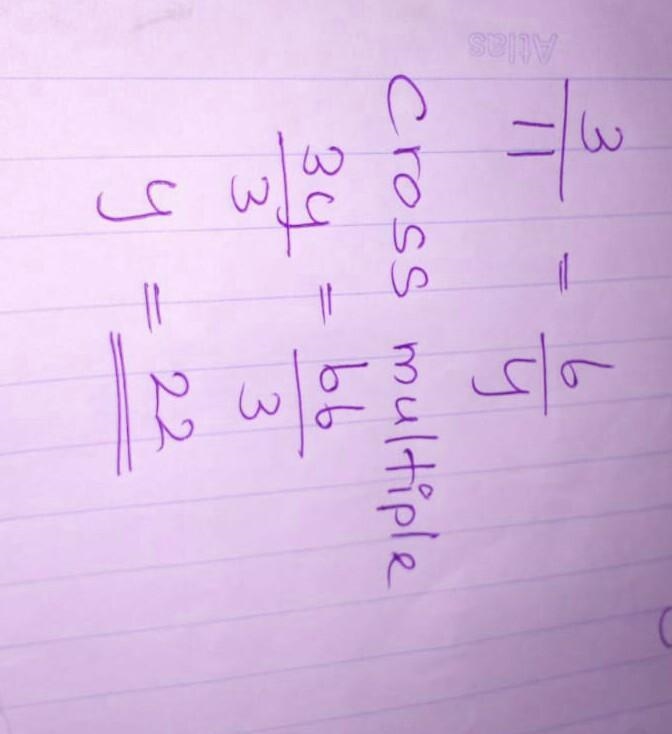 Atlas
3/11 = 6/y
Cross multiple
3y/3 = 66/3
y = 22